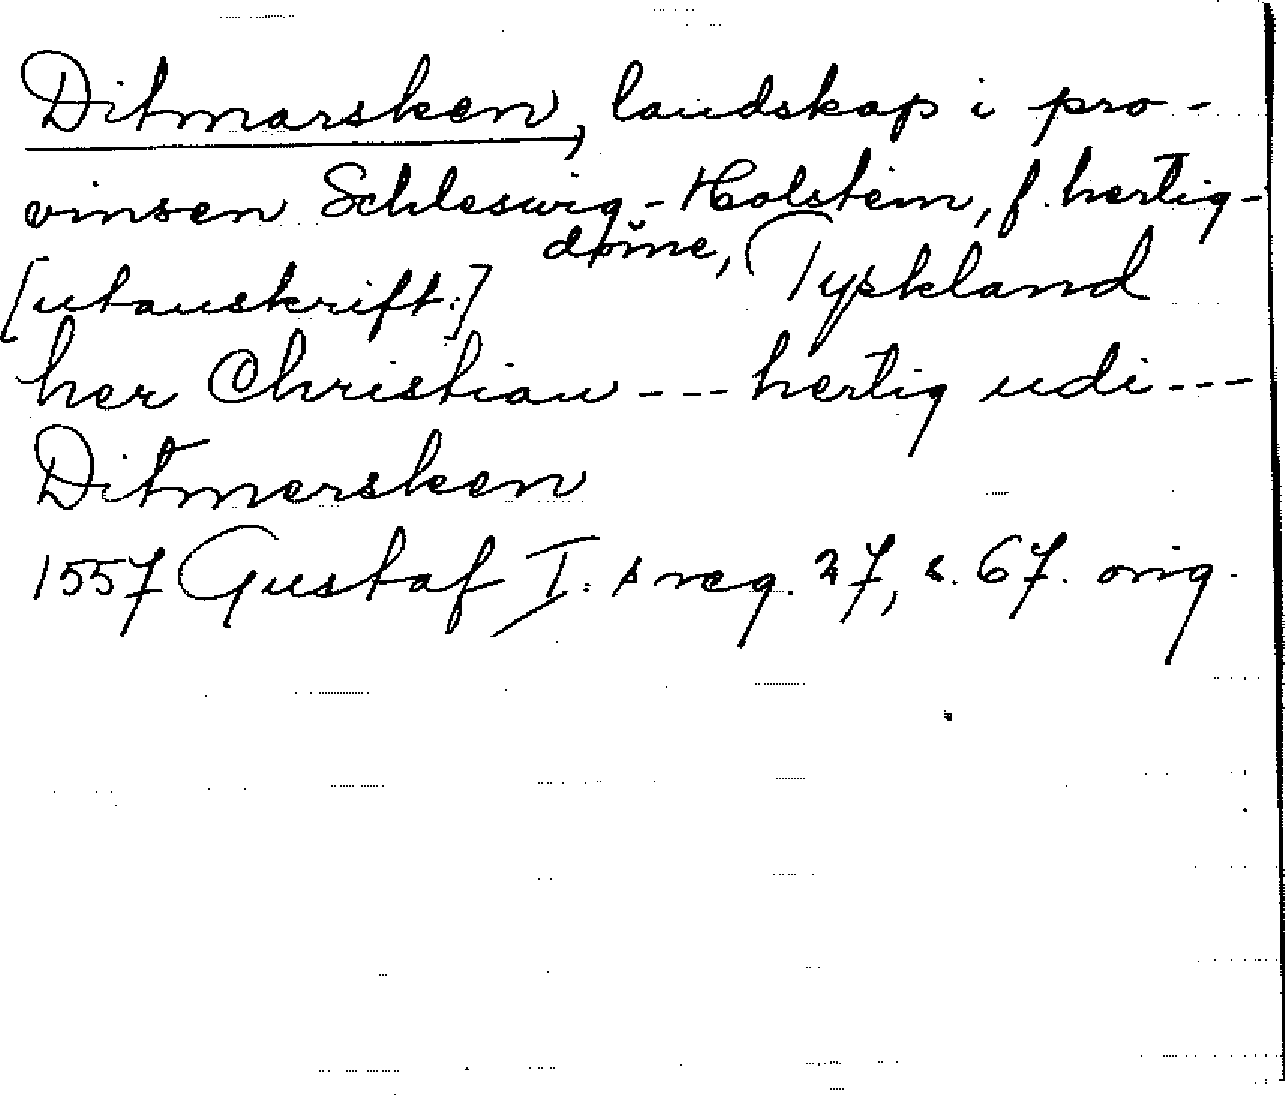 Ditmarsken, landskap i pro-
vinsen Schleswig-Holstein, f. hertig-
döme, Tyskland
[utanskrift:]
her Christian --- hertig udi ---
Ditmersken
1557 Gustaf I:s reg. 27, s. 67. orig.